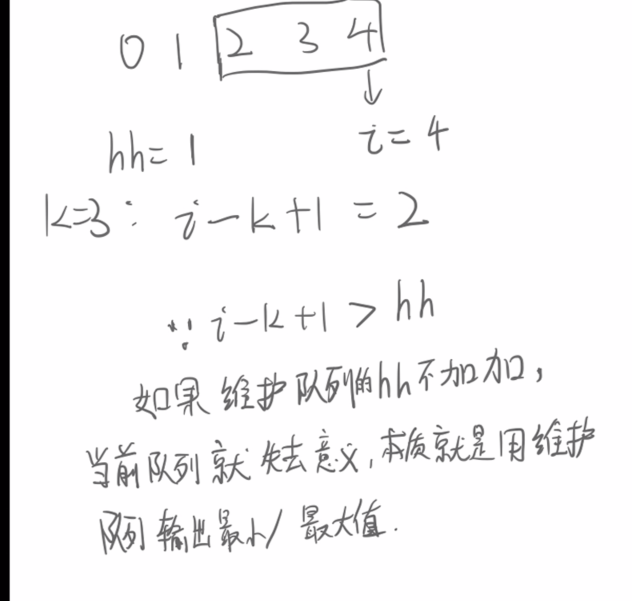 0 1 2 3 4
hh=1 i=4
k=3: i-k+1=2
∵ i-k+1>hh
如果维护队列的hh不加加,
当前队列就失去意义,本质就是用维护
队列输出最小/最大值.